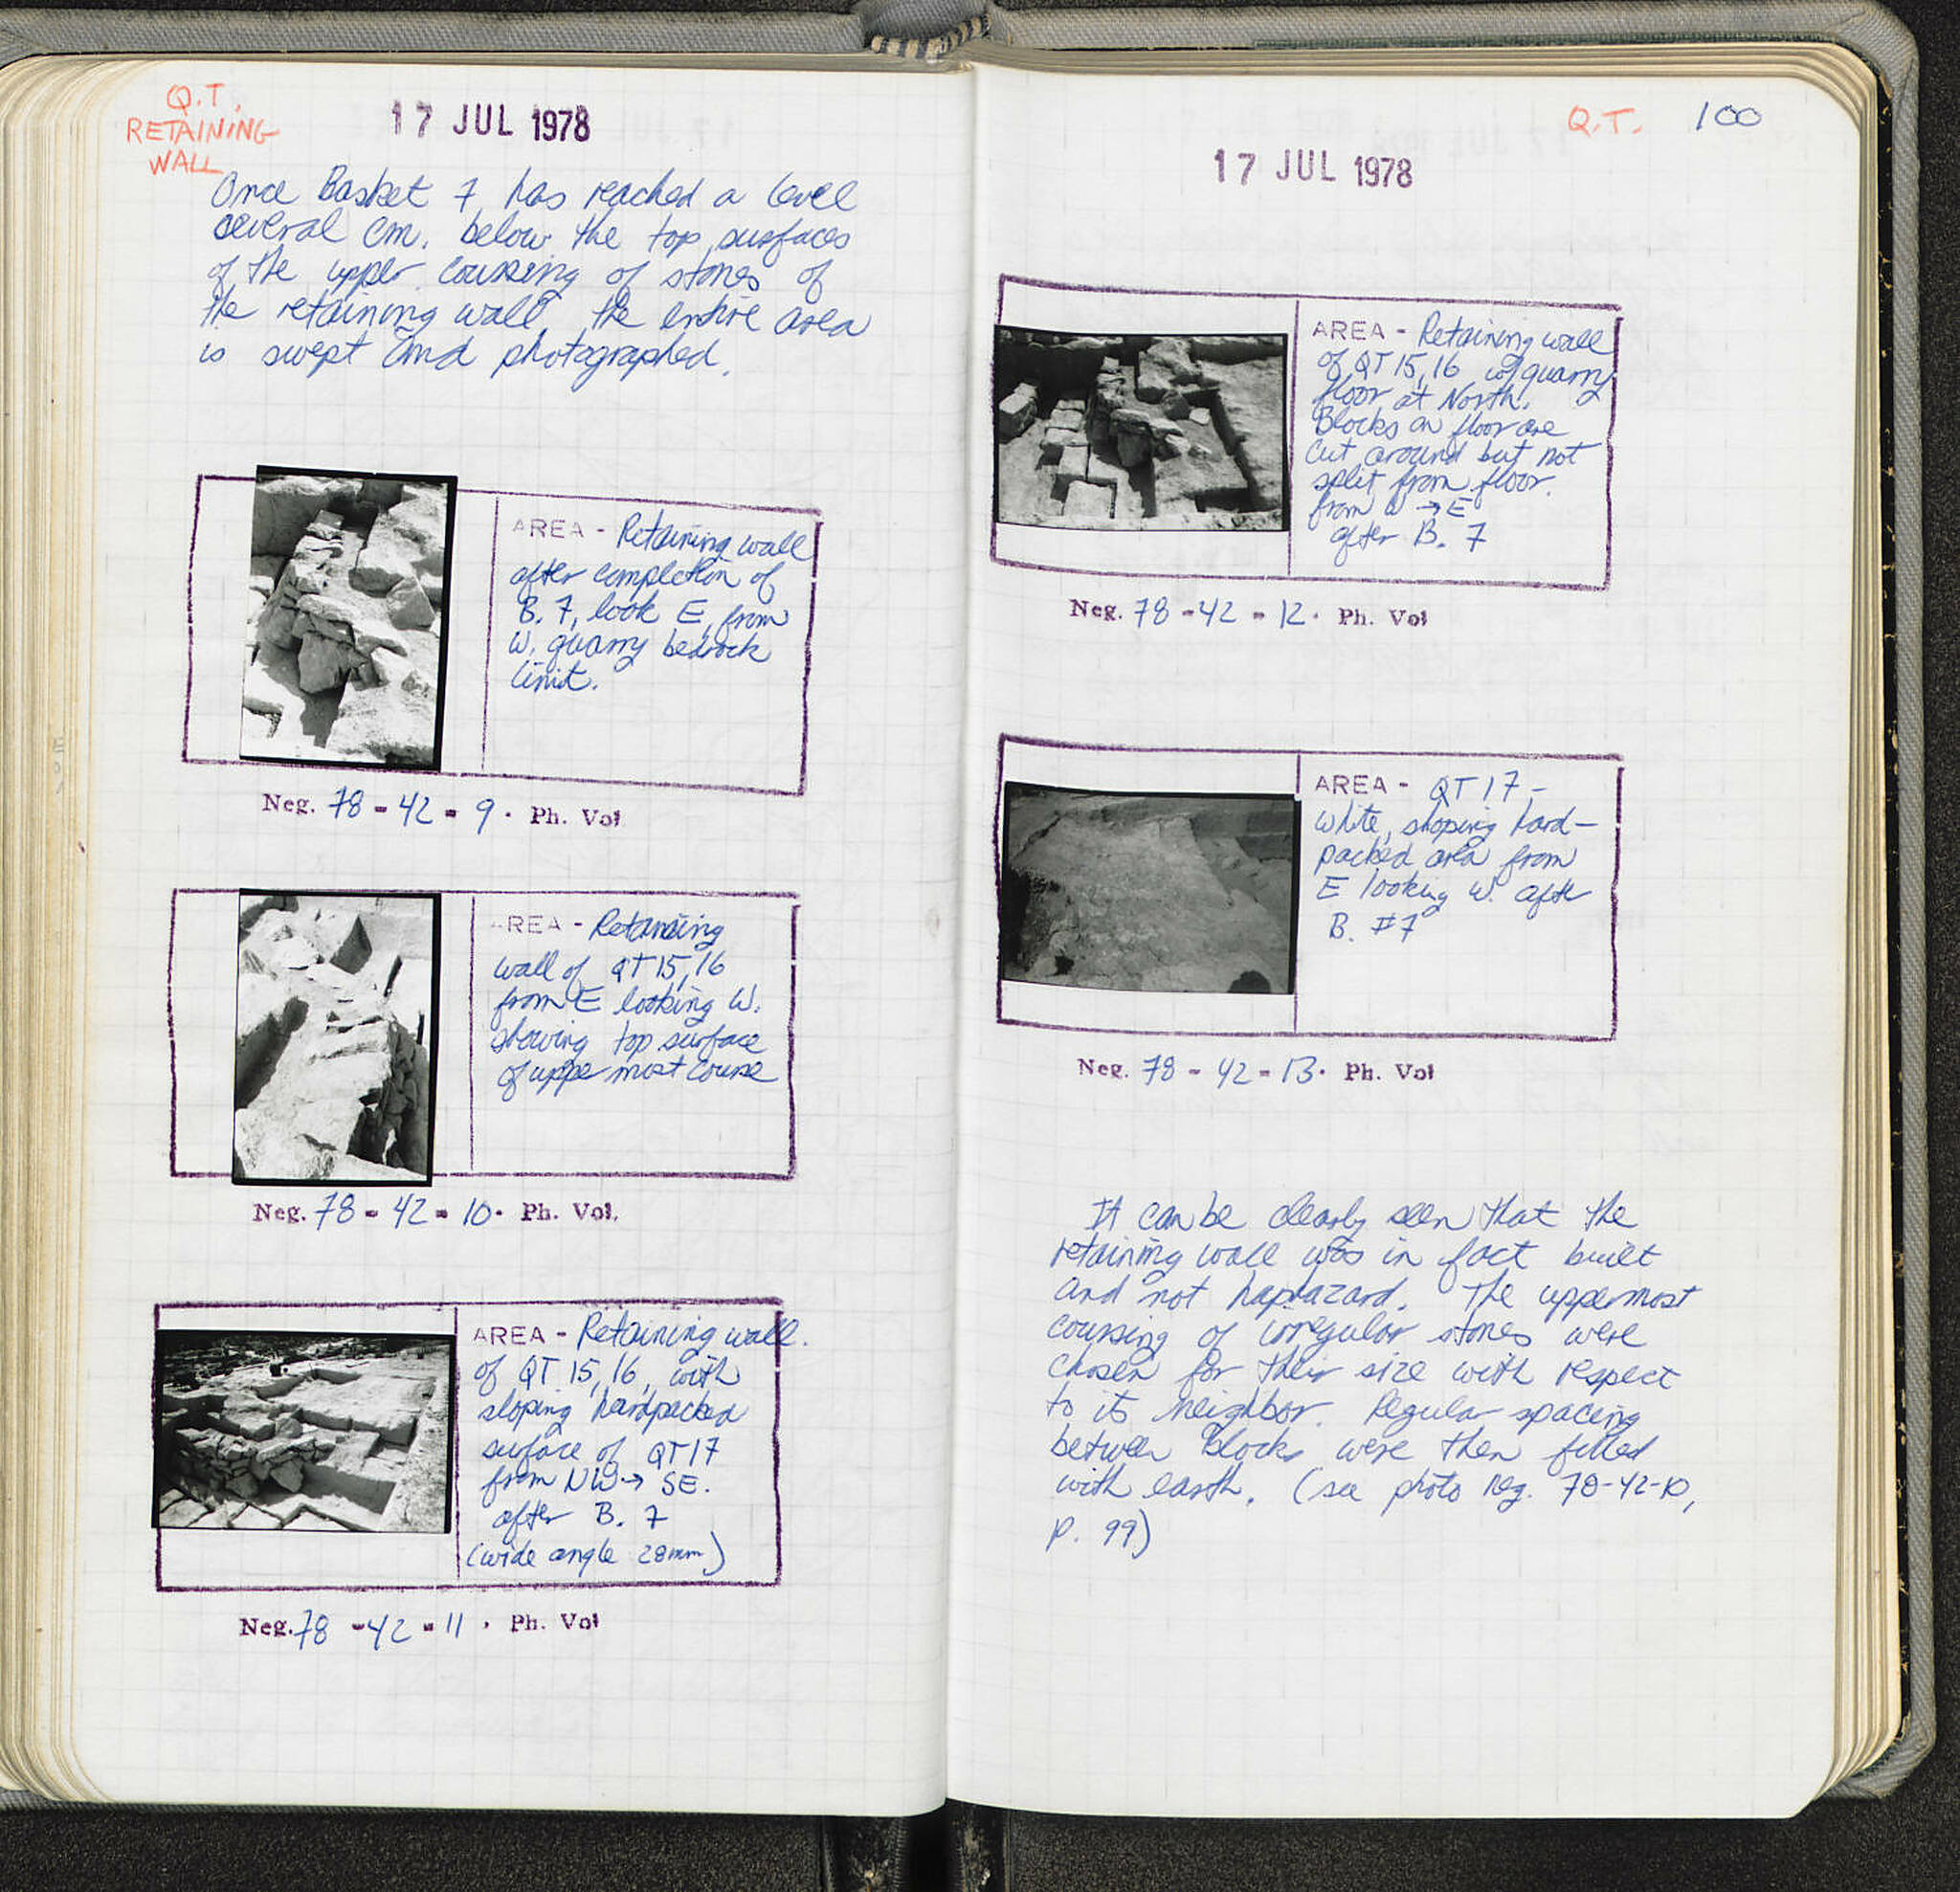 Q.T.
RETAINING
WALL
17 JUL 1978
Once Basket 7 has reached a level
several cm. below the top surfaces
of the upper coursing of stones of
the retaining wall, the entire area
is swept and photographed.
AREA - Retaining wall
after completion of
B. 7, look E, from
W. quarry bedrock
limit.
Neg. 78 - 42 - 9 . Ph. Vol
AREA - Retaining
wall of QT 15, 16
from E looking W.
showing top surface
of upper most course
Neg. 78 - 42 - 10 . Ph. Vol.
AREA - Retaining wall
of QT 15, 16, with
sloping hardpacked
surface of QT17
from NW → SE.
after B. 7
(wide angle 28mm)
Neg. 78 - 42 - 11 . Ph. Vol
Q.T. 100
17 JUL 1978
AREA - Retaining wall
of QT 15, 16 w/ quarry
floor at North.
Blocks on floor are
cut around but not
split from floor.
from W → E
after B. 7
Neg. 78 - 42 - 12 . Ph. Vol
AREA - QT 17 -
white, sloping hard-
packed area from
E looking W. after
B. #7
Neg. 78 - 42 - 13 . Ph. Vol
It can be clearly seen that the
retaining wall was in fact built
and not haphazard. The uppermost
coursing of irregular stones were
chosen for their size with respect
to its neighbor. Regular spacing
between blocks were then filled
with earth. (see photo neg. 78-42-10,
p. 99)